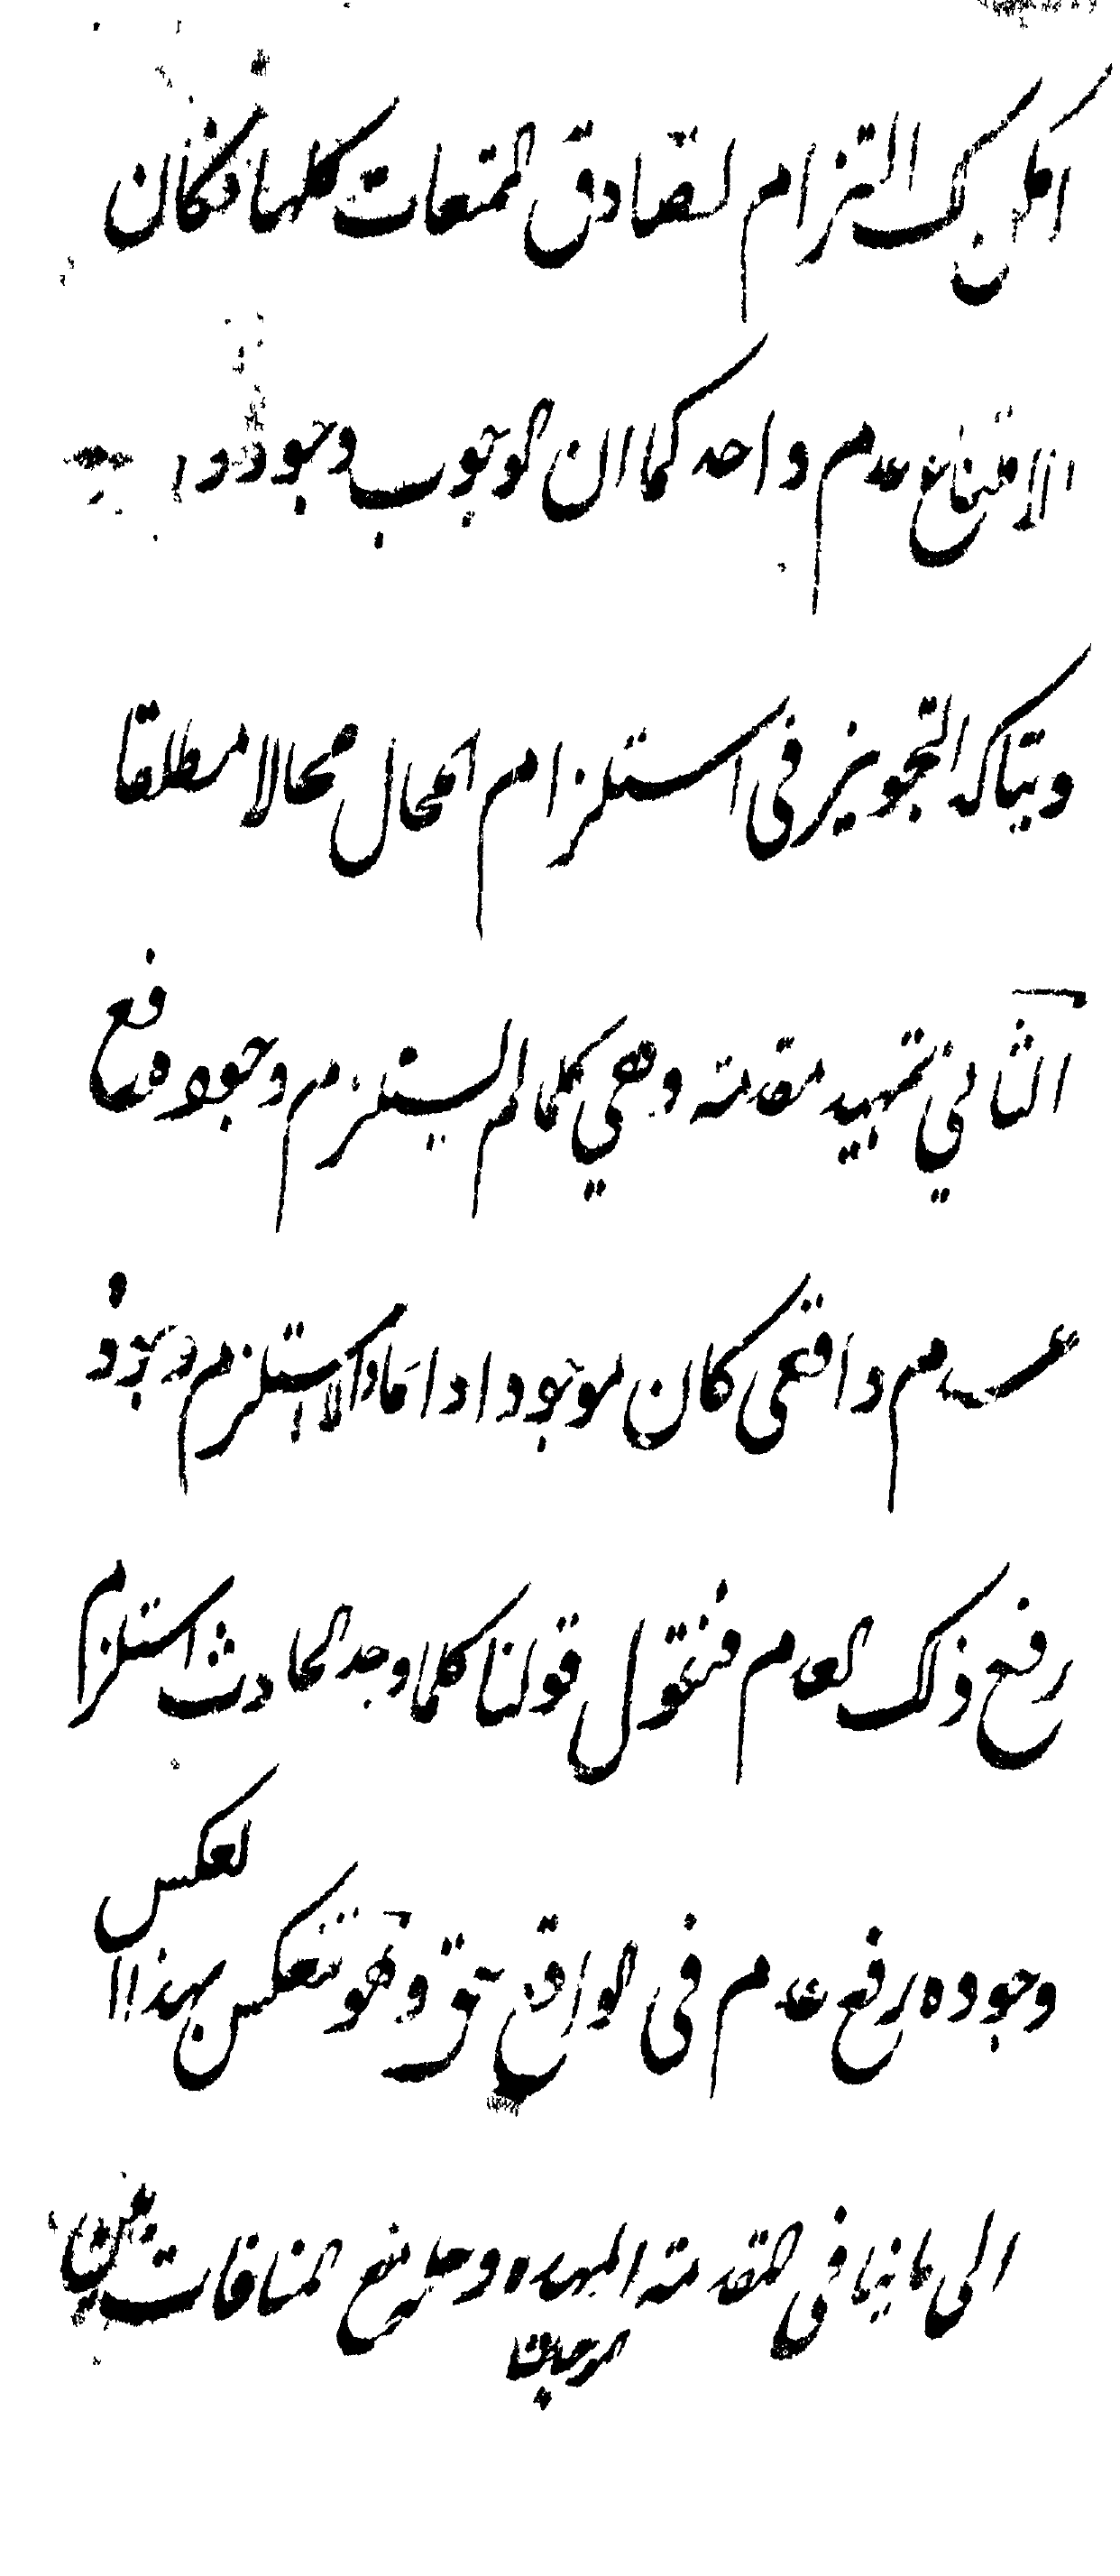 امكن لك التزام لصادق الممتنعات كلها فكان
الامتناع عدم واحد كما ان الوجوب وجود وا
ويتاكد التجويز فى استلزام المحال محالا مطلقا
الثاني تمهيد مقدمة وهي كلما لم يستلزم وجوده رفع
عدم واقعى كان موجودا دائما والا استلزم وجوده
رفع ذلك العدم فنقول قولنا كلما وجد الحادث استلزم
وجوده رفع عدم فى الواقع حق وهو تنعكس بهذا ا
لعكس
الى ما ينافى المقدمة الممهدة و منع المنافات بين
الموجبات